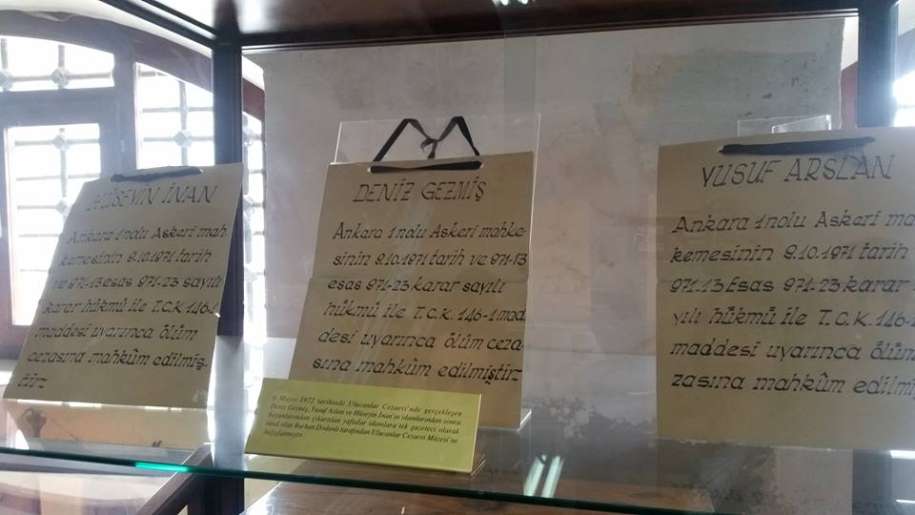 HÜSEYİN İNAN
Ankara 1 nolu Askeri mah
kemesinin 9.10.1971 tarih
ve 971-13 esas 971-23 sayılı
karar hükmü ile T.C.K. 146-1
maddesi uyarınca ölüm
cezasına mahkûm edilmiş-
tir.
DENİZ GEZMİŞ
Ankara 1 nolu Askeri mahke-
sinin 9.10.1971 tarih ve 971-13
esas 971-23 karar sayılı
hükmü ile T.C.K. 146-1 mad
desi uyarınca ölüm ceza-
sına mahkûm edilmiştir.
6 Mayıs 1972 tarihinde Ulucanlar Cezaevi'nde gerçekleşen
Deniz Gezmiş, Yusuf Aslan ve Hüseyin İnan'ın idamlarından sonra
boyunlarından çıkarılan yaftalar idamlara tek gazeteci olarak
tanık olan Burhan Dodanlı tarafından Ulucanlar Cezaevi Müzesi'ne
bağışlanmıştır.
YUSUF ARSLAN
Ankara 1 nolu Askeri ma
kemesinin 9.10.1971 tarih
971-13 Esas 971-23 karar
yılı hükmü ile T.C.K. 146-
maddesi uyarınca ölüm
zasına mahkûm edilmi